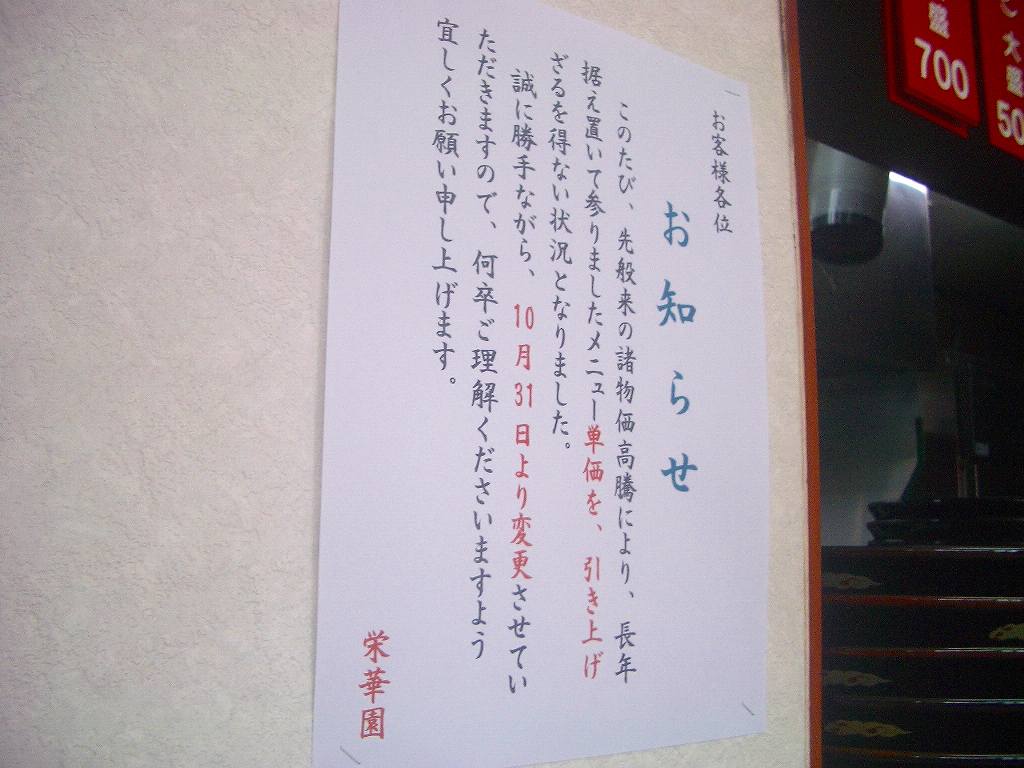 お客様各位
お知らせ
このたび、先般来の諸物価高騰により、長年
据え置いて参りましたメニュー単価を、引き上げ
ざるを得ない状況となりました。
誠に勝手ながら、10月31日より変更させてい
ただきますので、何卒ご理解くださいますよう
宜しくお願い申し上げます。
栄華園
大盛
50
盛
700